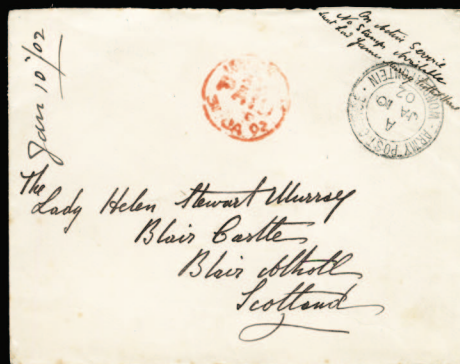 On Active Service
No Stamps Available
Jan 10/02
PAID
JA 02
ARMY POST OFFICE
A
JA 10
02
The
Lady Helen Stewart Murray
Blair Castle
Blair Atholl
Scotland